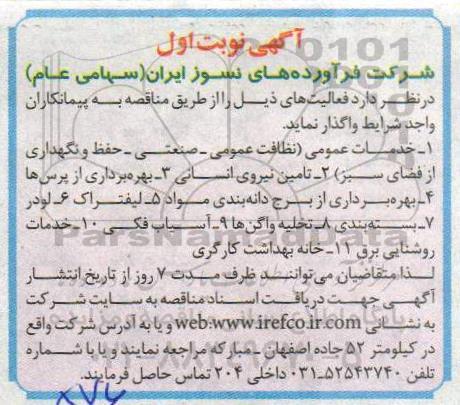 آگهی نوبت اول
شرکت فرآورده‌های نسوز ایران(سهامی عام)
درنظر دارد فعالیت‌های ذیل را از طریق مناقصه به پیمانکاران
واجد شرایط واگذار نماید.
۱-خدمات عمومی (نظافت عمومی ـ صنعتی ـ حفظ و نگهداری
از فضای سبز) ۲ـ تامین نیروی انسانی ۳ـ بهره‌برداری از پرس‌ها
۴ـ بهره‌برداری از برج دانه‌بندی مواد ۵ـ لیفتراک ۶ـ لودر
۷ـ بسته‌بندی ۸ـ تخلیه واگن‌ها ۹ـ آسیاب فکی ۱۰ـ خدمات
روشنایی برق ۱۱ـ خانه بهداشت کارگری
لذا متقاضیان می‌توانند ظرف مدت ۷ روز از تاریخ انتشار
آگهی جهت دریافت اسناد مناقصه به سایت شرکت
به نشانی web:www.irefco.ir.com و یا به آدرس شرکت واقع
در کیلومتر ۵۲ جاده اصفهان ـ مبارکه مراجعه نمایند و یا با شماره
تلفن ۵۲۵۴۳۷۴۰-۰۳۱ داخلی ۲۰۴ تماس حاصل فرمایند.
ParsNamadData